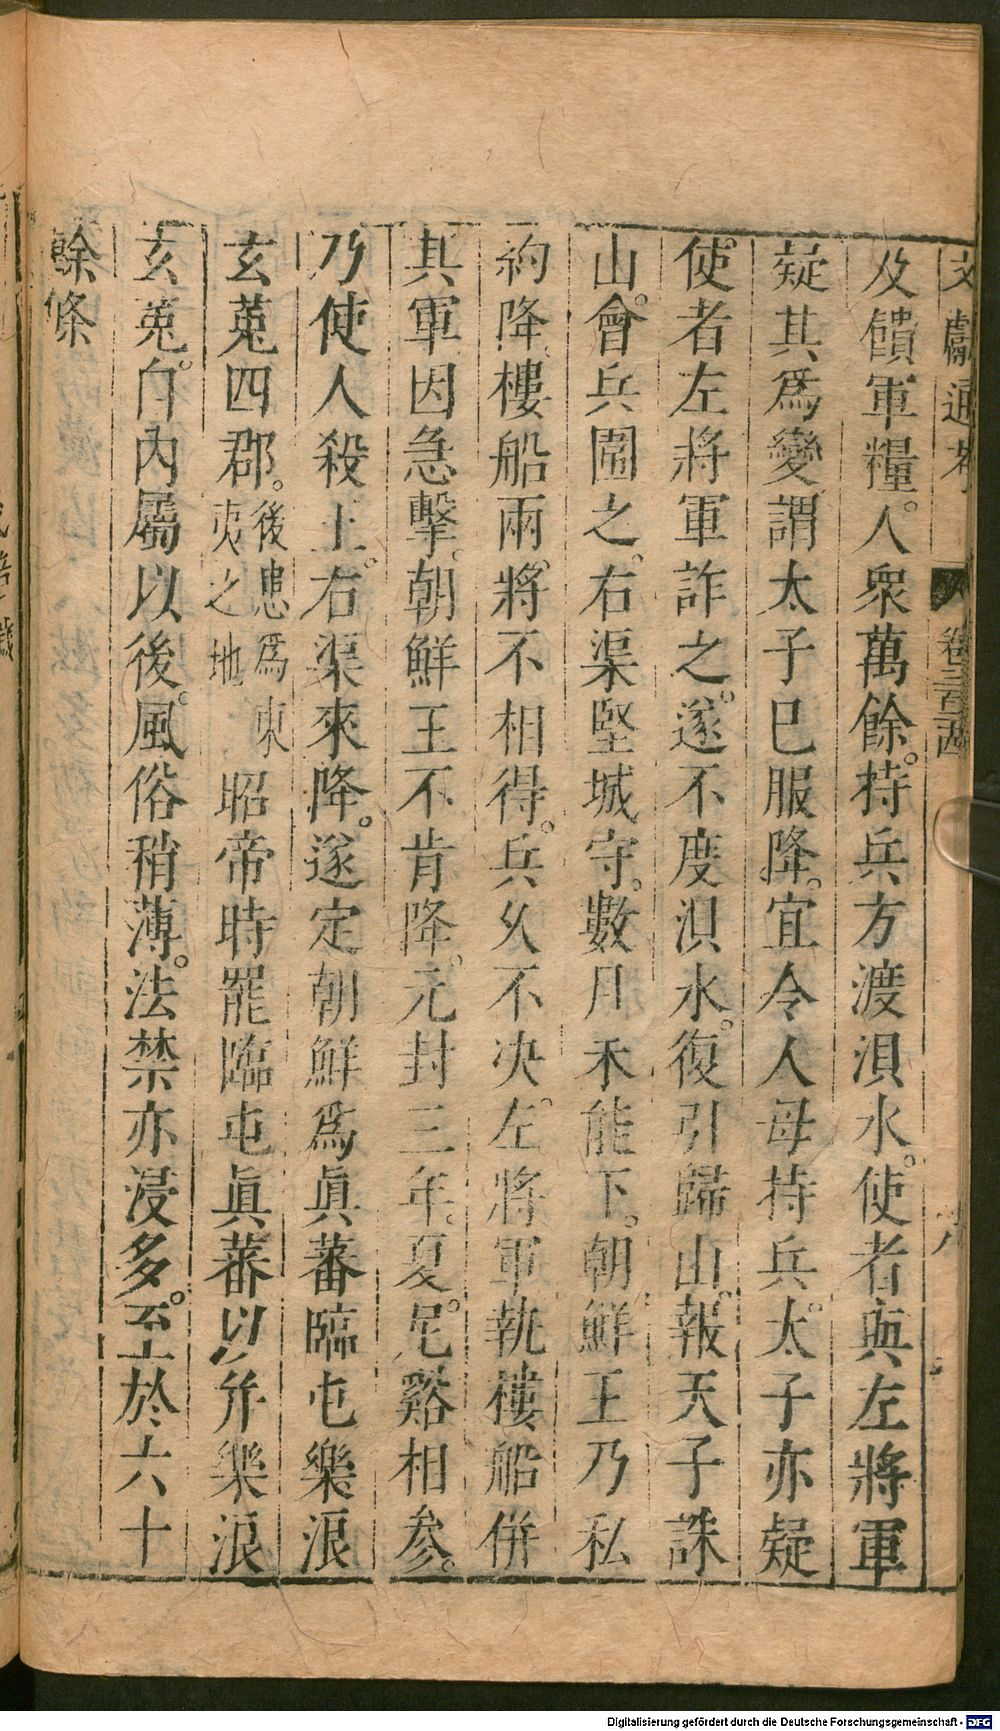 文獻通考 卷三百二十四 十八
及饋軍糧。人衆萬餘。持兵方渡浿水。使者與左將軍
疑其爲變謂太子已服降。宜令人母持兵。太子亦疑
使者左將軍詐之。遂不度浿水。復引歸山。報天子誅
山。會兵圍之。右渠堅城守。數月未能下。朝鮮王乃私
約降樓船兩。將不相得。兵久不决。左將軍執樓船併
其軍因急擊。朝鮮王不肯降。元封三年。夏。尼谿相参。
乃使人殺王。右渠來降。遂定朝鮮爲眞蕃臨屯樂浪
玄菟四郡。後患爲東夷之地 昭帝時罷臨屯眞蕃以并樂浪
玄菟。自內屬以後。風俗稍薄。法禁亦浸多。至於六十
餘條
Digitalisierung gefördert durch die Deutsche Forschungsgemeinschaft - DFG